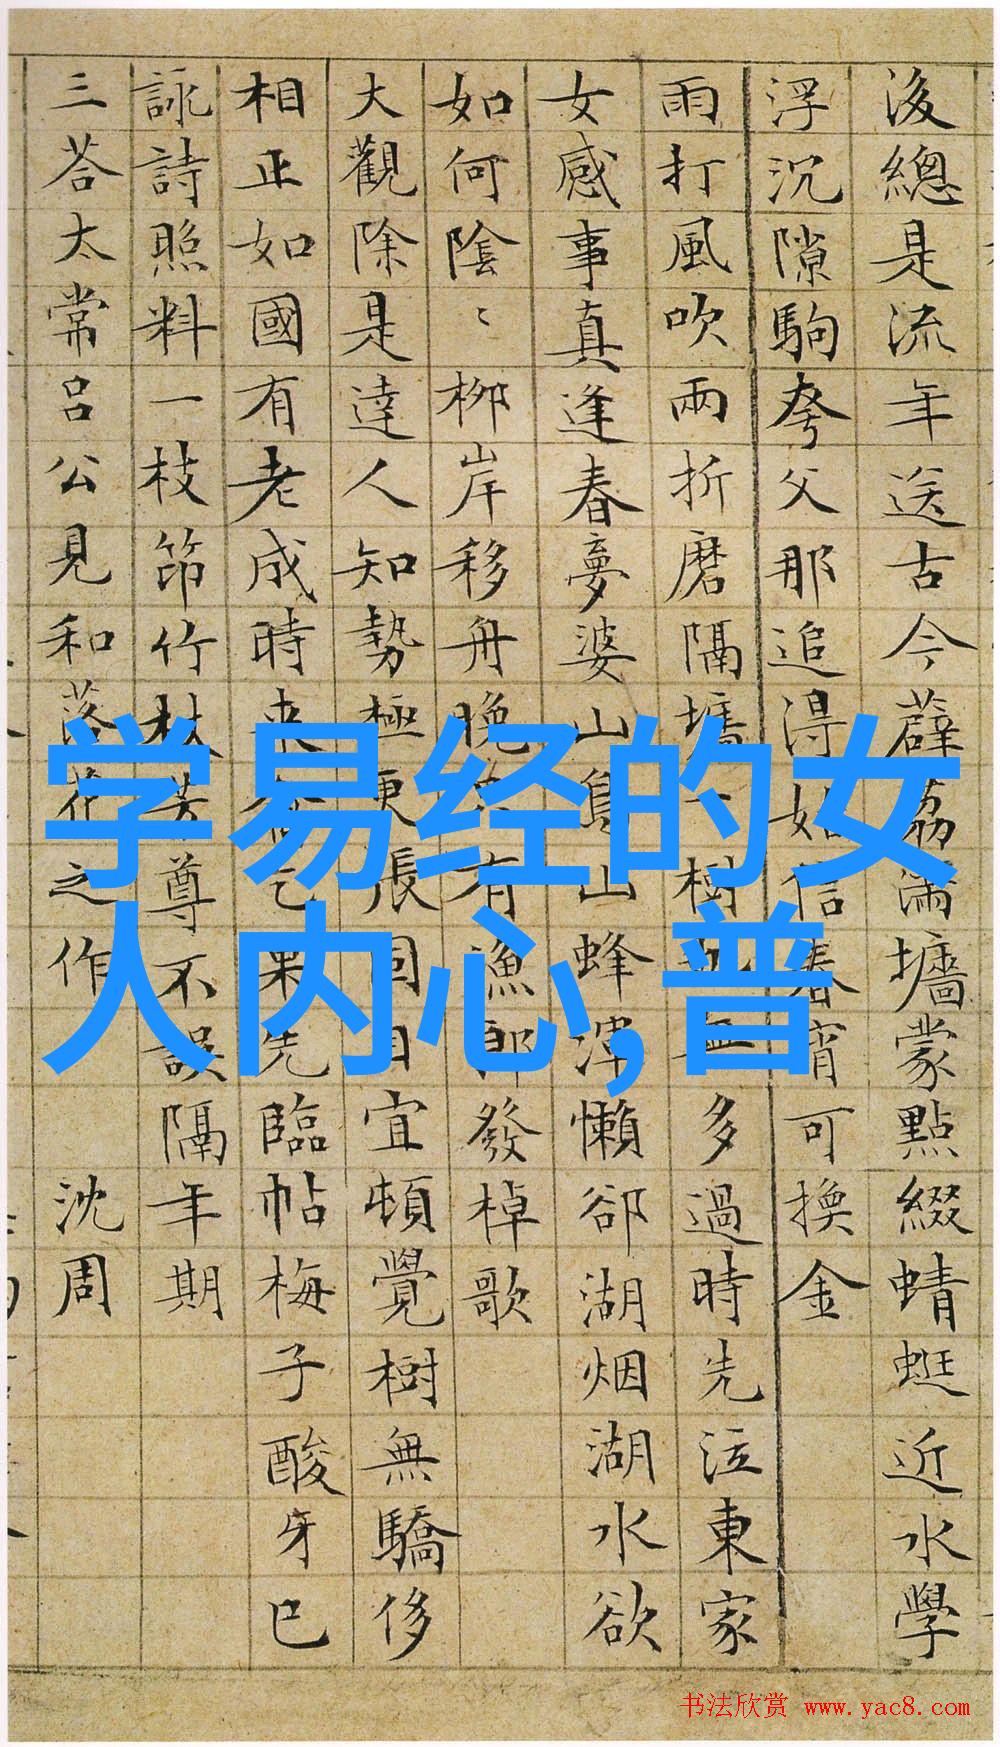 後總是流年送古今薜荔滿墻蒙點綴蜻蜓近水學
浮沉隙駒夸父那追得如信春宵可換金
雨打風吹兩折磨隔墻一樹無多過時先泣東家
女感事真逢春夢婆山鳥山蜂渾懶卻湖烟湖水欲
如何陰〻柳岸移舟晚有漁郎發棹歌
大觀除是達人知勢極更張固自宜頓覺樹無驕侈
相正如國有老成時來乞果先臨帖梅子酸牙巳
詠詩照料一枝笻竹杖芳尊不誤隔年期
三荅太常呂公見和落花之作 沈周
学易经的女
人内心,普
书法欣赏 www.yac8.com